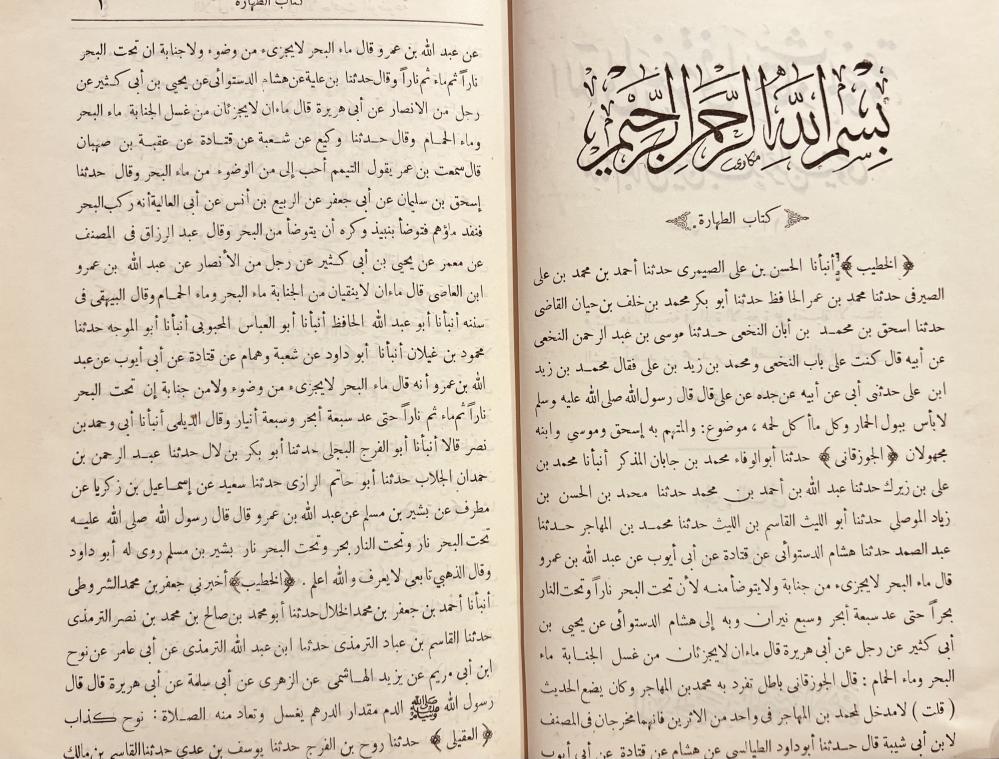 بسم الله الرحمن الرحيم
مكاوى
كتاب الطهارة.
﴿الخطيب﴾ أنبأنا الحسن بن على الصيمرى حدثنا أحمد بن محمد بن على
الصيرفى حدثنا محمد بن عمر الحافظ حدثنا أبو بكر محمد بن خلف بن حيان القاضى
حدثنا اسحق بن محمد بن أبان النخعى حدثنا موسى بن عبد الرحمن النخعى
عن أبيه قال كنت على باب النخعى ومحمد بن زيد بن على فقال محمد بن زيد
ابن على حدثنى أبى عن أبيه عن جده عن على قال قال رسول الله صلى الله عليه وسلم
لابأس ببول الحمار وكل ماأكل لحمه ، موضوع: والمتهم به إسحق وموسى وابنه
مجهولان ﴿الجوزقانى﴾ حدثنا أبو الوفاء محمد بن جابان المذكر أنبأنا محمد بن
على بن زيرك حدثنا عبد الله بن أحمد بن محمد حدثنا محمد بن الحسن بن
زياد الموصلى حدثنا أبو الليث القاسم بن الليث حدثنا محمد بن المهاجر حدثنا
عبد الصمد حدثنا هشام الدستوائى عن قتادة عن أبى أيوب عن عبد الله بن عمرو
قال ماء البحر لايجزىء من جنابة ولايتوضأ منه لأن تحت البحر ناراً وتحت النار
بحراً حتى عد سبعة أبحر وسبع نيران وبه إلى هشام الدستوائى عن يحيى بن
أبى كثير عن رجل عن أبى هريرة قال ماءان لايجزئان من غسل الجنابة ماء
البحر وماء الحمام : قال الجوزقانى باطل تفرد به محمد بن المهاجر وكان يضع الحديث
( قلت ) لامدخل لمحمد بن المهاجر فى واحد من الاثرين فانهما مخرجان فى المصنف
لابن أبى شيبة قال حدثنا أبوداود الطيالسى عن هشام عن قتادة عن أبى أيوب
كتاب الطهارة
عن عبد الله بن عمرو قال ماء البحر لايجزىء من وضوء ولاجنابة ان تحت البحر
ناراً ثم ماء ثم ناراً وقال حدثنا بن علية عن هشام الدستوائى عن يحيى بن أبى كثير عن
رجل من الانصار عن أبى هريرة قال ماءان لايجزئان من غسل الجنابة ماء البحر
وماء الحمام وقال حدثنا وكيع عن شعبة عن قتادة عن عقبة بن صهبان
قال سمعت بن عمر يقول التيمم أحب إلى من الوضوء من ماء البحر وقال حدثنا
إسحق بن سليمان عن أبى جعفر عن الربيع بن أنس عن أبى العالية أنه ركب البحر
فنفد ماؤهم فتوضأ بنبيذ وكره أن يتوضأ من البحر وقال عبد الرزاق فى المصنف
عن معمر عن يحيى بن أبى كثير عن رجل من الأنصار عن عبد الله بن عمرو
ابن العاصى قال ماءان لاينقيان من الجنابة ماء البحر وماء الحمام وقال البيهقى فى
سننه أنبأنا أبو عبد الله الحافظ أنبأنا أبو العباس المحبوبى أنبأنا أبو الموجه حدثنا
محمود بن غيلان أنبأنا أبو داود عن شعبة وهمام عن قتادة عن أبى أيوب عن عبد
الله بن عمرو أنه قال ماء البحر لايجزىء من وضوء ولامن جنابة إن تحت البحر
ناراً ثم ماء ثم ناراً حتى عد سبعة أبحر وسبعة أنيار وقال الديلمى أنبأنا أبى وحمد بن
نصر قالا أنبأنا أبو الفرج البجلى حدثنا أبو بكر بن لال حدثنا عبد الرحمن بن
حمدان الجلاب حدثنا أبو حاتم الرازى حدثنا سعيد عن إسماعيل بن زكريا عن
مطرف عن بشير بن مسلم عن عبد الله بن عمرو قال قال رسول الله صلى الله عليه
تحت البحر نار وتحت النار بحر وتحت البحر نار بشير بن مسلم روى له أبو داود
وقال الذهبي تابعى لايعرف والله اعلم . ﴿الخطيب﴾ أخبرني جعفر بن محمد الشروطى
أنبأنا أحمد بن جعفر بن محمد الخلال حدثنا أبو محمد بن صالح بن محمد بن نصر الترمذى
حدثنا القاسم بن عباد الترمذى حدثنا ابن عبد الله الترمذى عن أبى عامر عن نوح
ابن أبى مريم عن يزيد الهاشمى عن الزهرى عن أبى سلمة عن أبى هريرة قال قال
رسول الله ﷺ الدم مقدار الدرهم يغسل وتعاد منه الصلاة : نوح كذاب
﴿العقيلى﴾ حدثنا روح بن الفرج حدثنا يوسف بن عدي حدثنا القاسم بن مالك